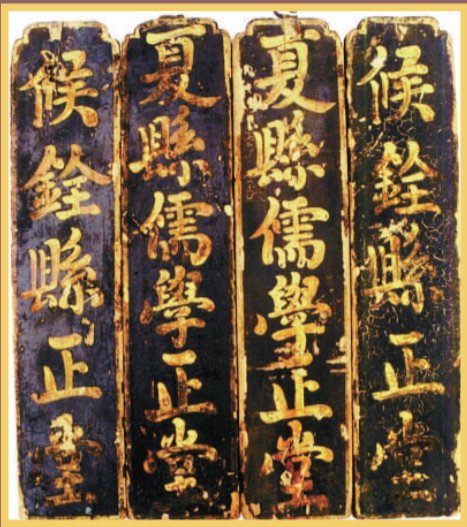 候銓縣正堂
夏縣儒學正堂
夏縣儒學正堂
候銓縣正堂